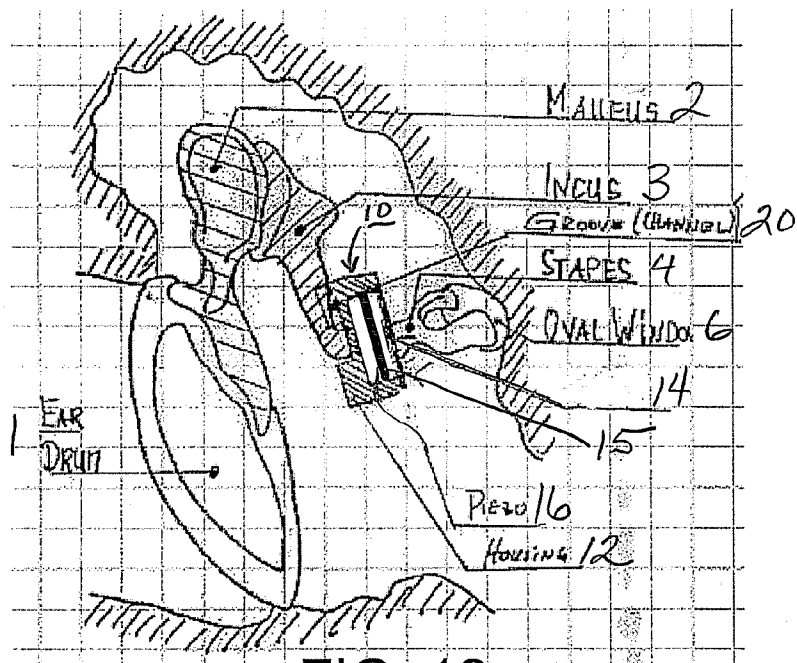 MALLEUS 2
INCUS 3
10
GROOVE (CHANNEL) 20
STAPES 4
OVAL WINDOW 6
14
15
1 EAR
DRUM
PIEZO 16
HOUSING 12